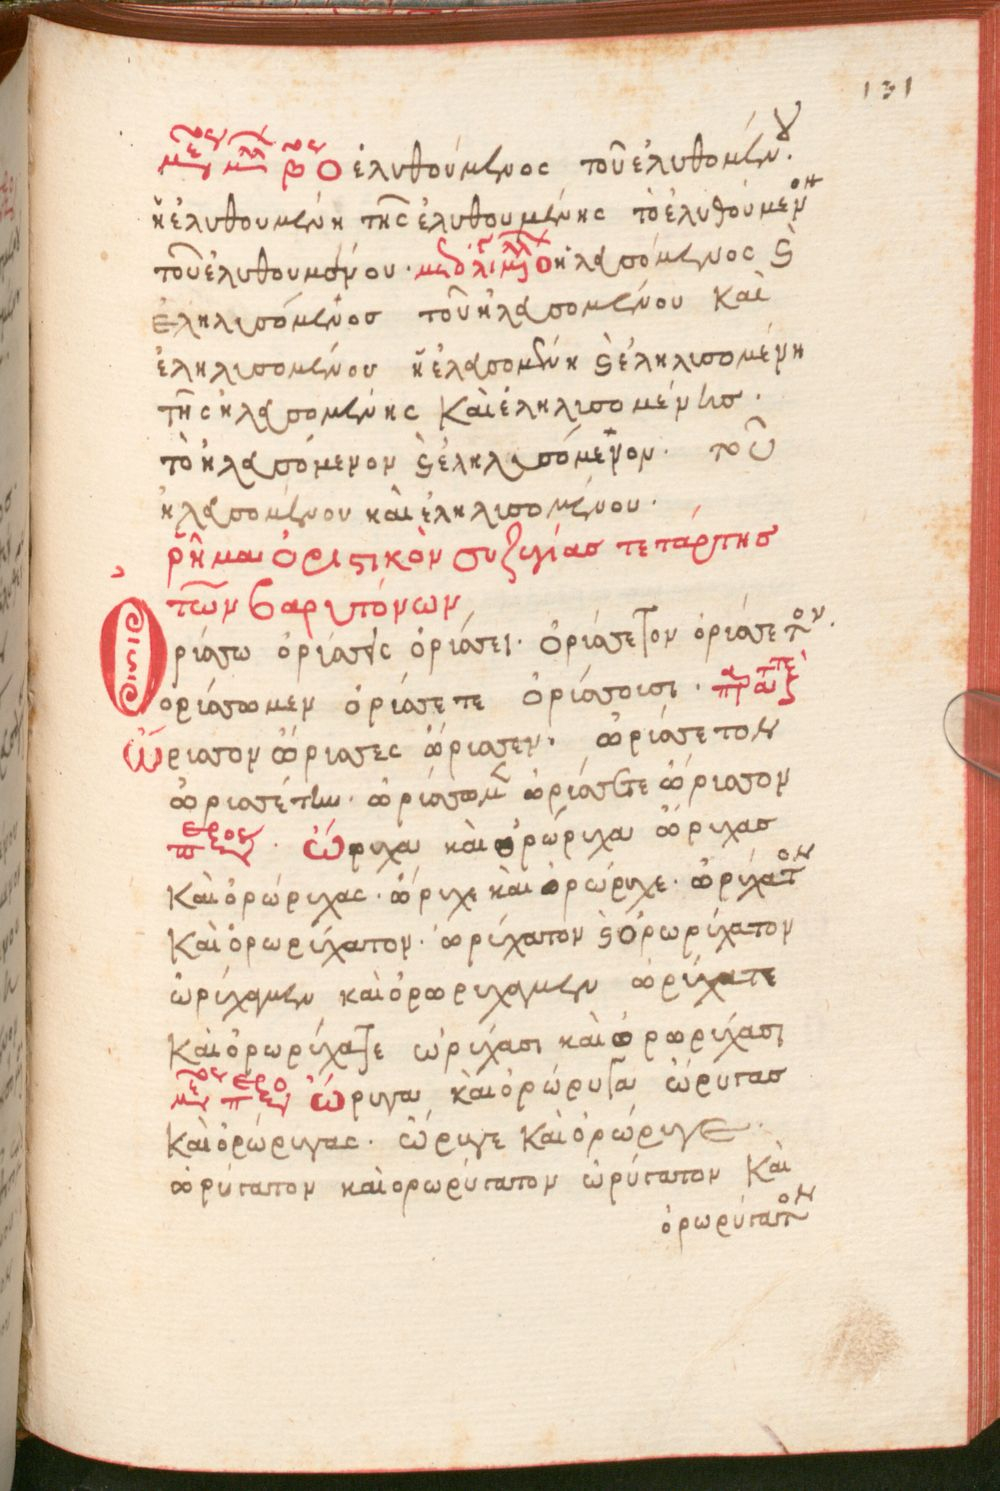 131
Ὁ ἐλυθούμενος τοῦ ἐλυθομένου.
ἡ ἐλυθουμένη τῆς ἐλυθουμένης τὸ ἐλυθούμενον
τοῦ ἐλυθουμένου. ὁ ἠλασόμενος ϛ
ἐληλισόμενος τοῦ ἠλασομένου καὶ
ἐληλισομένου ἡ ἐλασομένη ϛ ἐληλισομένη
τῆς ἠλασομένης καὶ ἐληλισομένης.
τὸ ἠλασόμενον ϛ ἐληλισόμενον. τοῦ
ἠλασομένου καὶ ἐληλισομένου.
ῥῆμα ὁριστικὸν συζυγίας τετάρτησ
τῶν βαριτόνων
Ὀριάσω ὀριάσεις ὀριάσει. ὀριάσετον ὀριάσετον.
ὀριάσωμεν ὀριάσετε ὀριάσοισι.
Ὤριασον ὤριασες ὤριασεν. ὠριάσετον
ὠριασέτην. ὠριάσωμεν ὠριάσετε ὤριασον
Ὤριχα καὶ ὀρώριχα ὤριχασ
καὶ ὀρώριχας. ὤριχε καὶ ὀρώριχε. ὠρίχατον
καὶ ὀρωρίχατον. ὠρίχατον ϛ ὀρωρίχατον
ὠρίχαμεν καὶ ὀρωριχαμεν ὠρίχατε
καὶ ὀρωρίχατε ὠρίχασι καὶ ὀρωρίχασι
Ὤρυγα καὶ ὀρώρυγα ὤρυγασ
καὶ ὀρώριγας. ὤριγε καὶ ὀρώριγε.
ὠρύγατον καὶ ορωρύγατον ὠρύγατον καὶ
ὀρωρύγατον